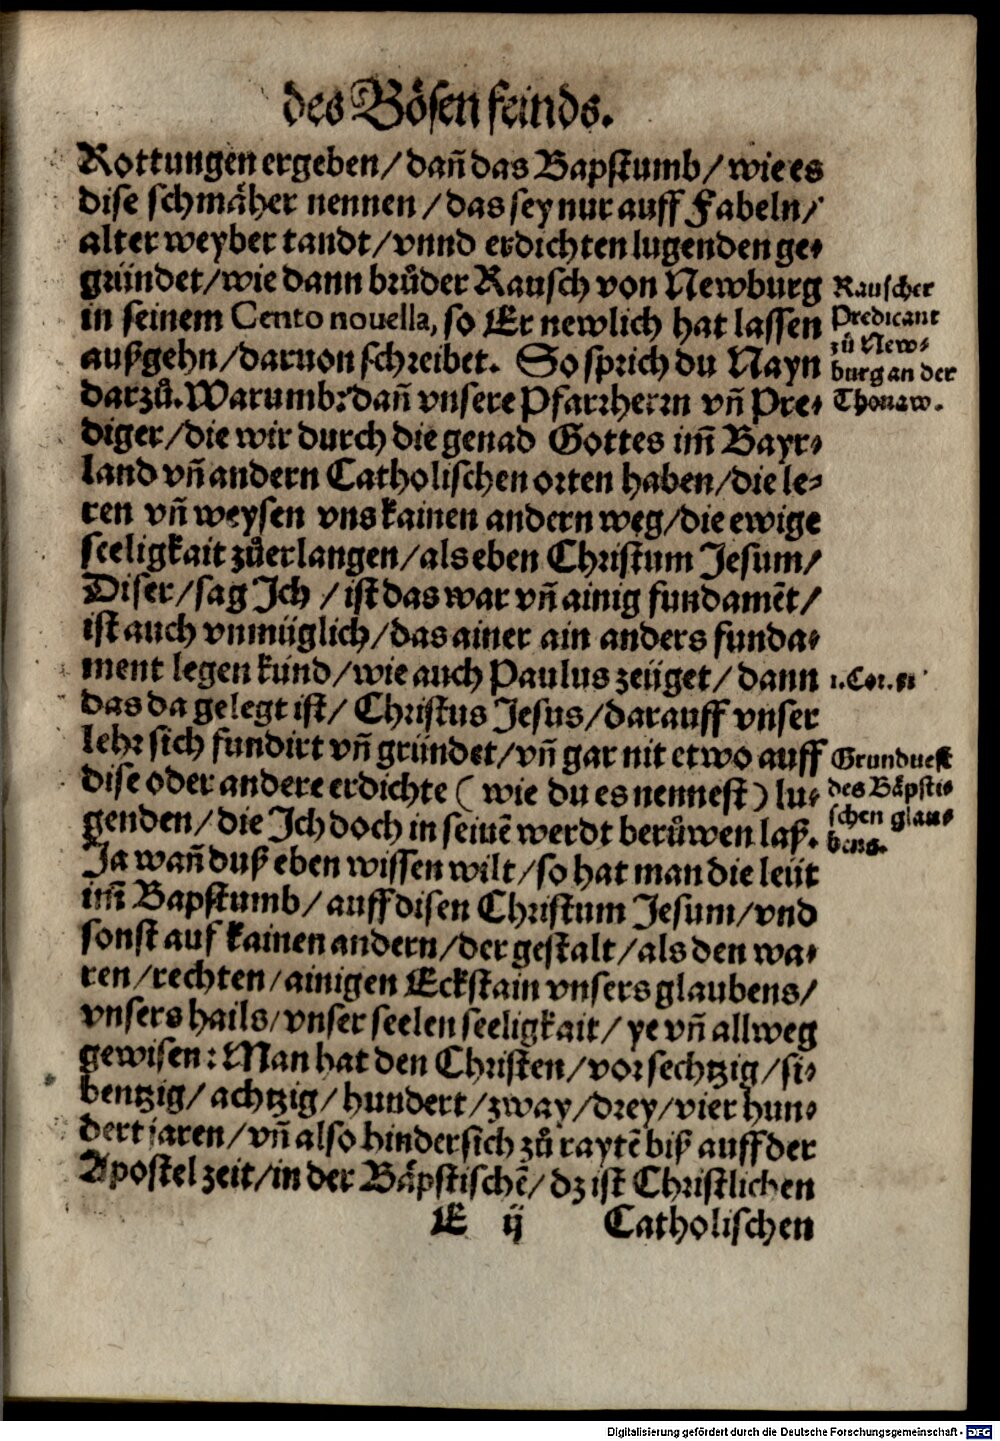 des Bösen feinds.
Rottungen ergeben/ dañ das Bapstumb/ wie es
dise schmäher nennen / das sey nur auff Fabeln/
alter weyber tandt/ vnnd erdichten lugenden ge-
gründet/ wie dann brůder Rausch von Newburg
in seinem Cento nouella, so Er newlich hat lassen
außgehn/ daruon schreibet. So sprich du Nayn
darzů. Warumb? dañ vnsere Pfarrherrn vñ Pre-
diger/ die wir durch die genad Gottes im̃ Bayr-
land vñ andern Catholischen orten haben/ die le-
ren vñ weysen vns kainen andern weg/ die ewige
seeligkait zůerlangen/ als eben Christum Jesum/
Diser/ sag Ich / ist das war vñ ainig fundamẽt/
ist auch vnmüglich/ das ainer ain anders funda-
ment legen künd/ wie auch Paulus zeüget/ dann
das da gelegt ist/ Christus Jesus/ darauff vnser
lehr sich fundirt vñ gründet/ vñ gar nit etwo auff
dise oder andere erdichte ( wie du es nennest ) lu-
genden/ die Ich doch in seinẽ werdt berůwen laß.
Ja wañ duß eben wissen wilt/ so hat man die leüt
im̃ Bapstumb/ auff disen Christum Jesum/ vnd
sonst auf kainen andern/ der gestalt/ als den wa-
ren/ rechten/ ainigen Eckstain vnsers glaubens/
vnsers hails/ vnser seelen seeligkait/ ye vñ allweg
gewisen: Man hat den Christen/ vor sechtzig/ si-
bentzig/ achtzig/ hundert/ zway/ drey/ vier hun-
dert jaren/ vñ also hindersich zů raytẽ biß auff der
Apostel zeit/ in der Bäpstischẽ/ dz ist Christlichen
E ij Catholischen
Rauscher
Predicant
zů New-
burg an der
Thonaw.
1. Cor. 11
Grunduest
des Bäpsti-
schen glau-
bens.
Digitalisierung gefördert durch die Deutsche Forschungsgemeinschaft - DFG